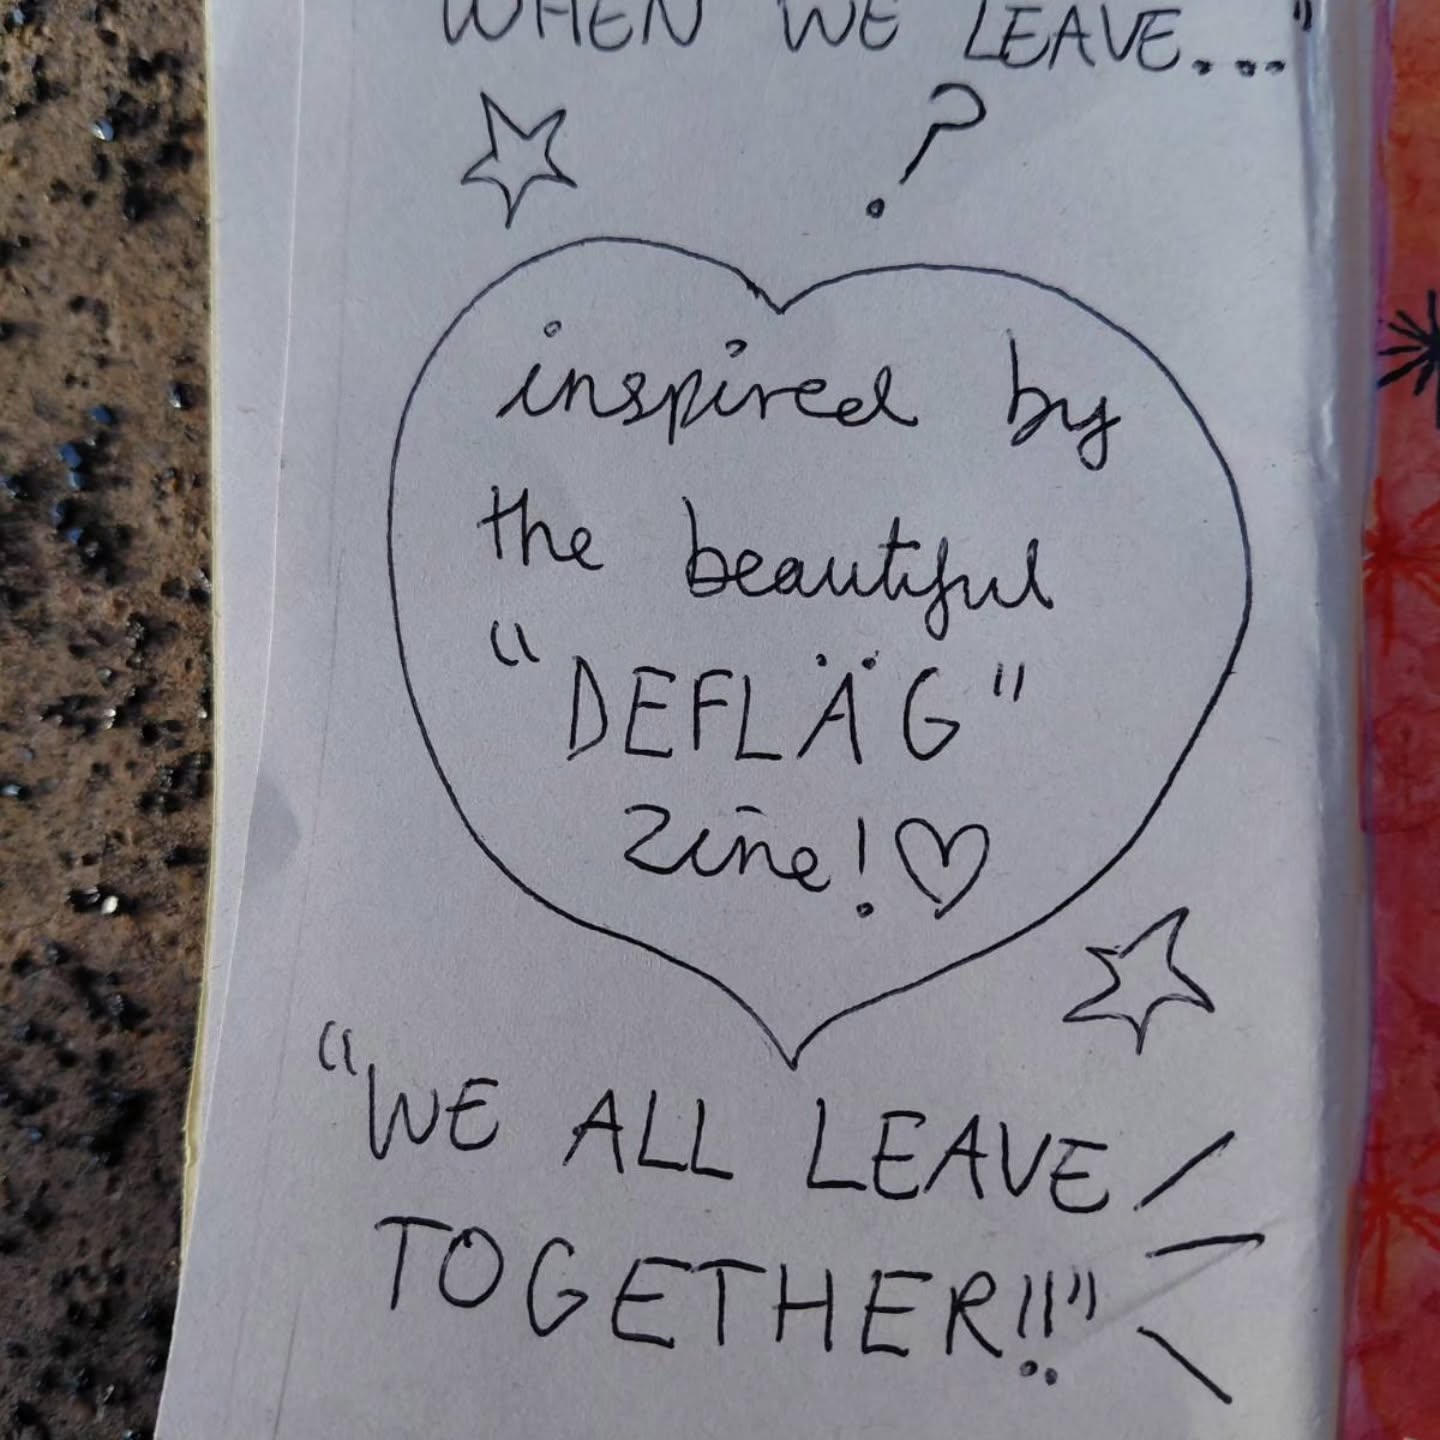 WHEN WE LEAVE..."
?
inspired by
the beautiful
"DEFLÄG"
zine!♡
"WE ALL LEAVE
TOGETHER!!"